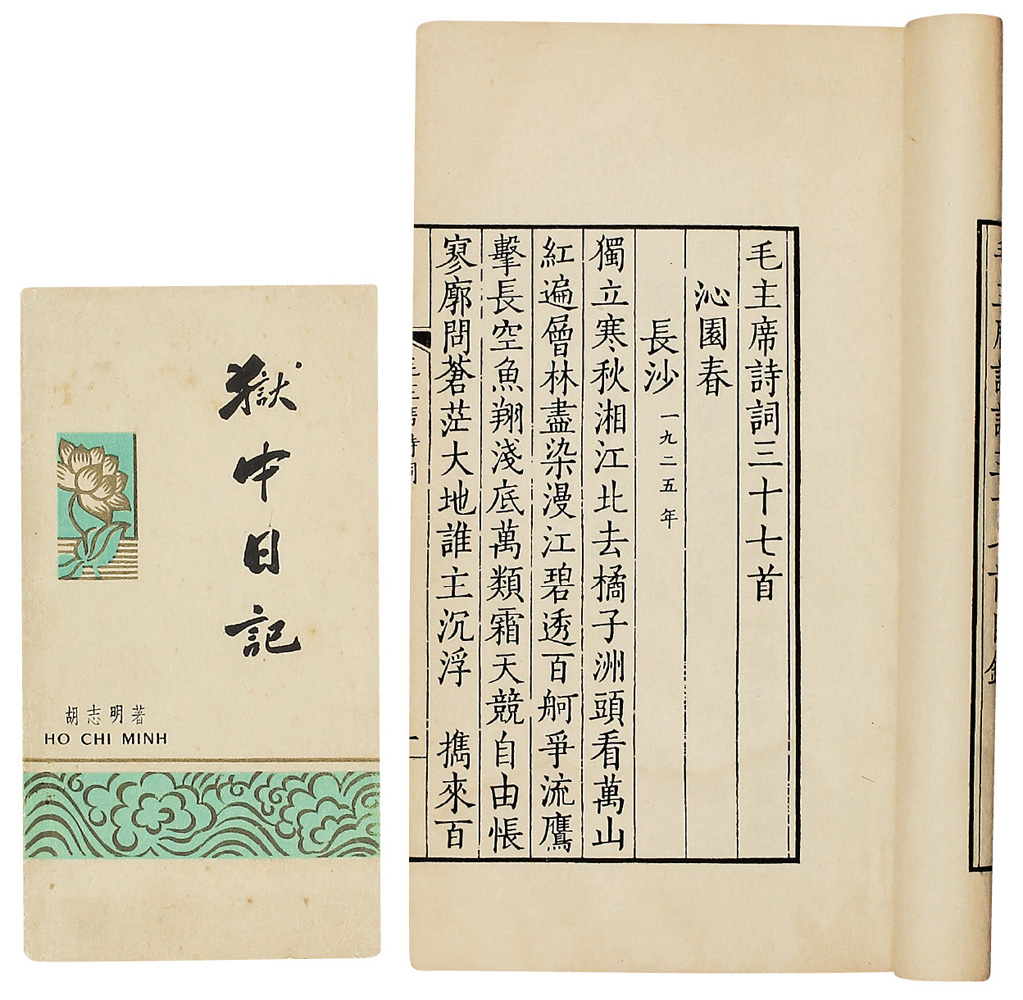 獄中日記
胡志明著
HO CHI MINH
毛主席詩詞三十七首
沁園春
長沙 一九二五年
獨立寒秋湘江北去橘子洲頭看萬山
紅遍層林盡染漫江碧透百舸爭流鷹
擊長空魚翔淺底萬類霜天競自由悵
寥廓問蒼茫大地誰主沉浮 攜來百